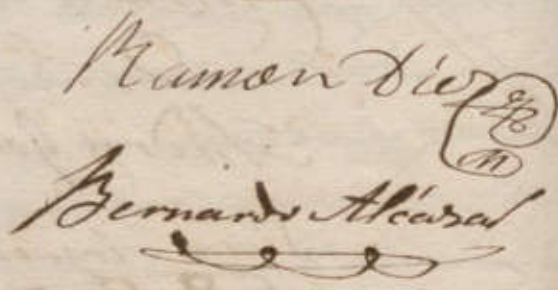 Ramon Diez
Bernardo Alcázar